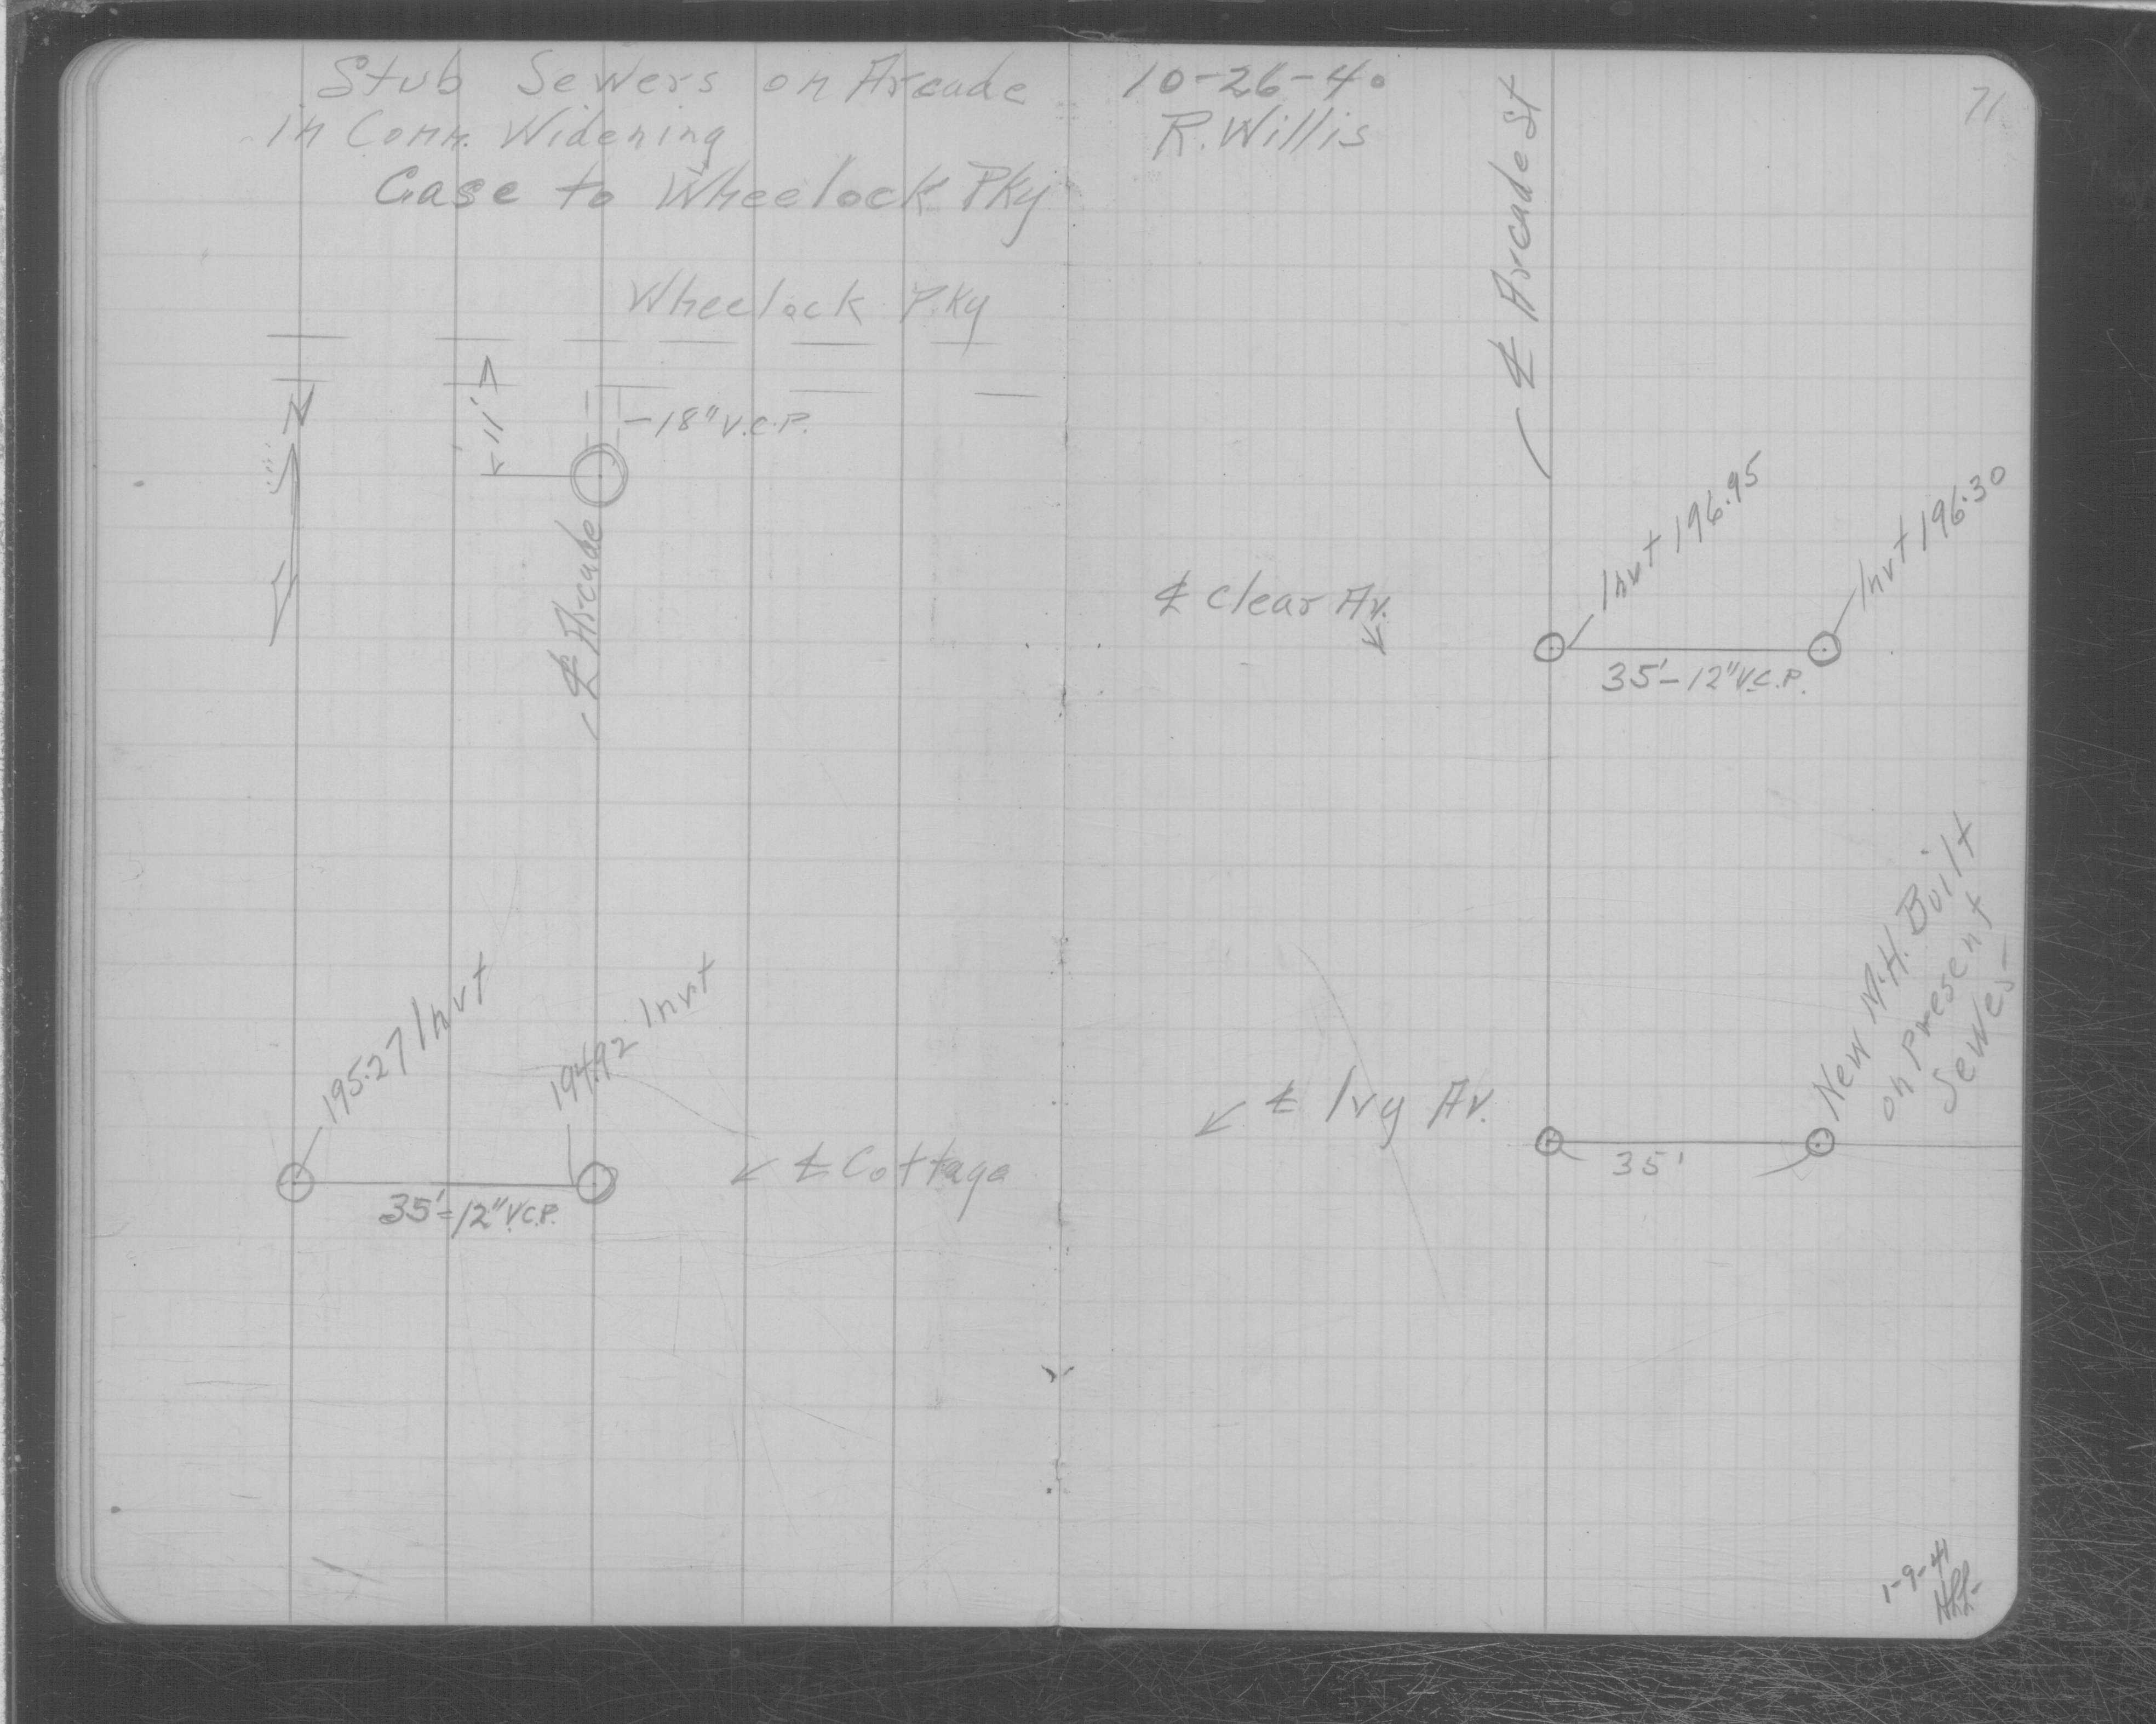 Stub Sewers on Arcade
in Conn. Widening
Case to Wheelock Pky
Wheelock P.Ky
N
11'
18" V.C.P.
℄ Arcade
195.27 Invt
194.92 Invt
35'-12" V.C.P.
℄ Cottage
10-26-40
R. Willis
71
℄ Arcade St
℄ Clear Av.
Invt 196.95
Invt 196.30
35'-12" V.C.P.
New M.H. Built
on Present
Sewer
℄ Ivy Av.
35'
1-9-41